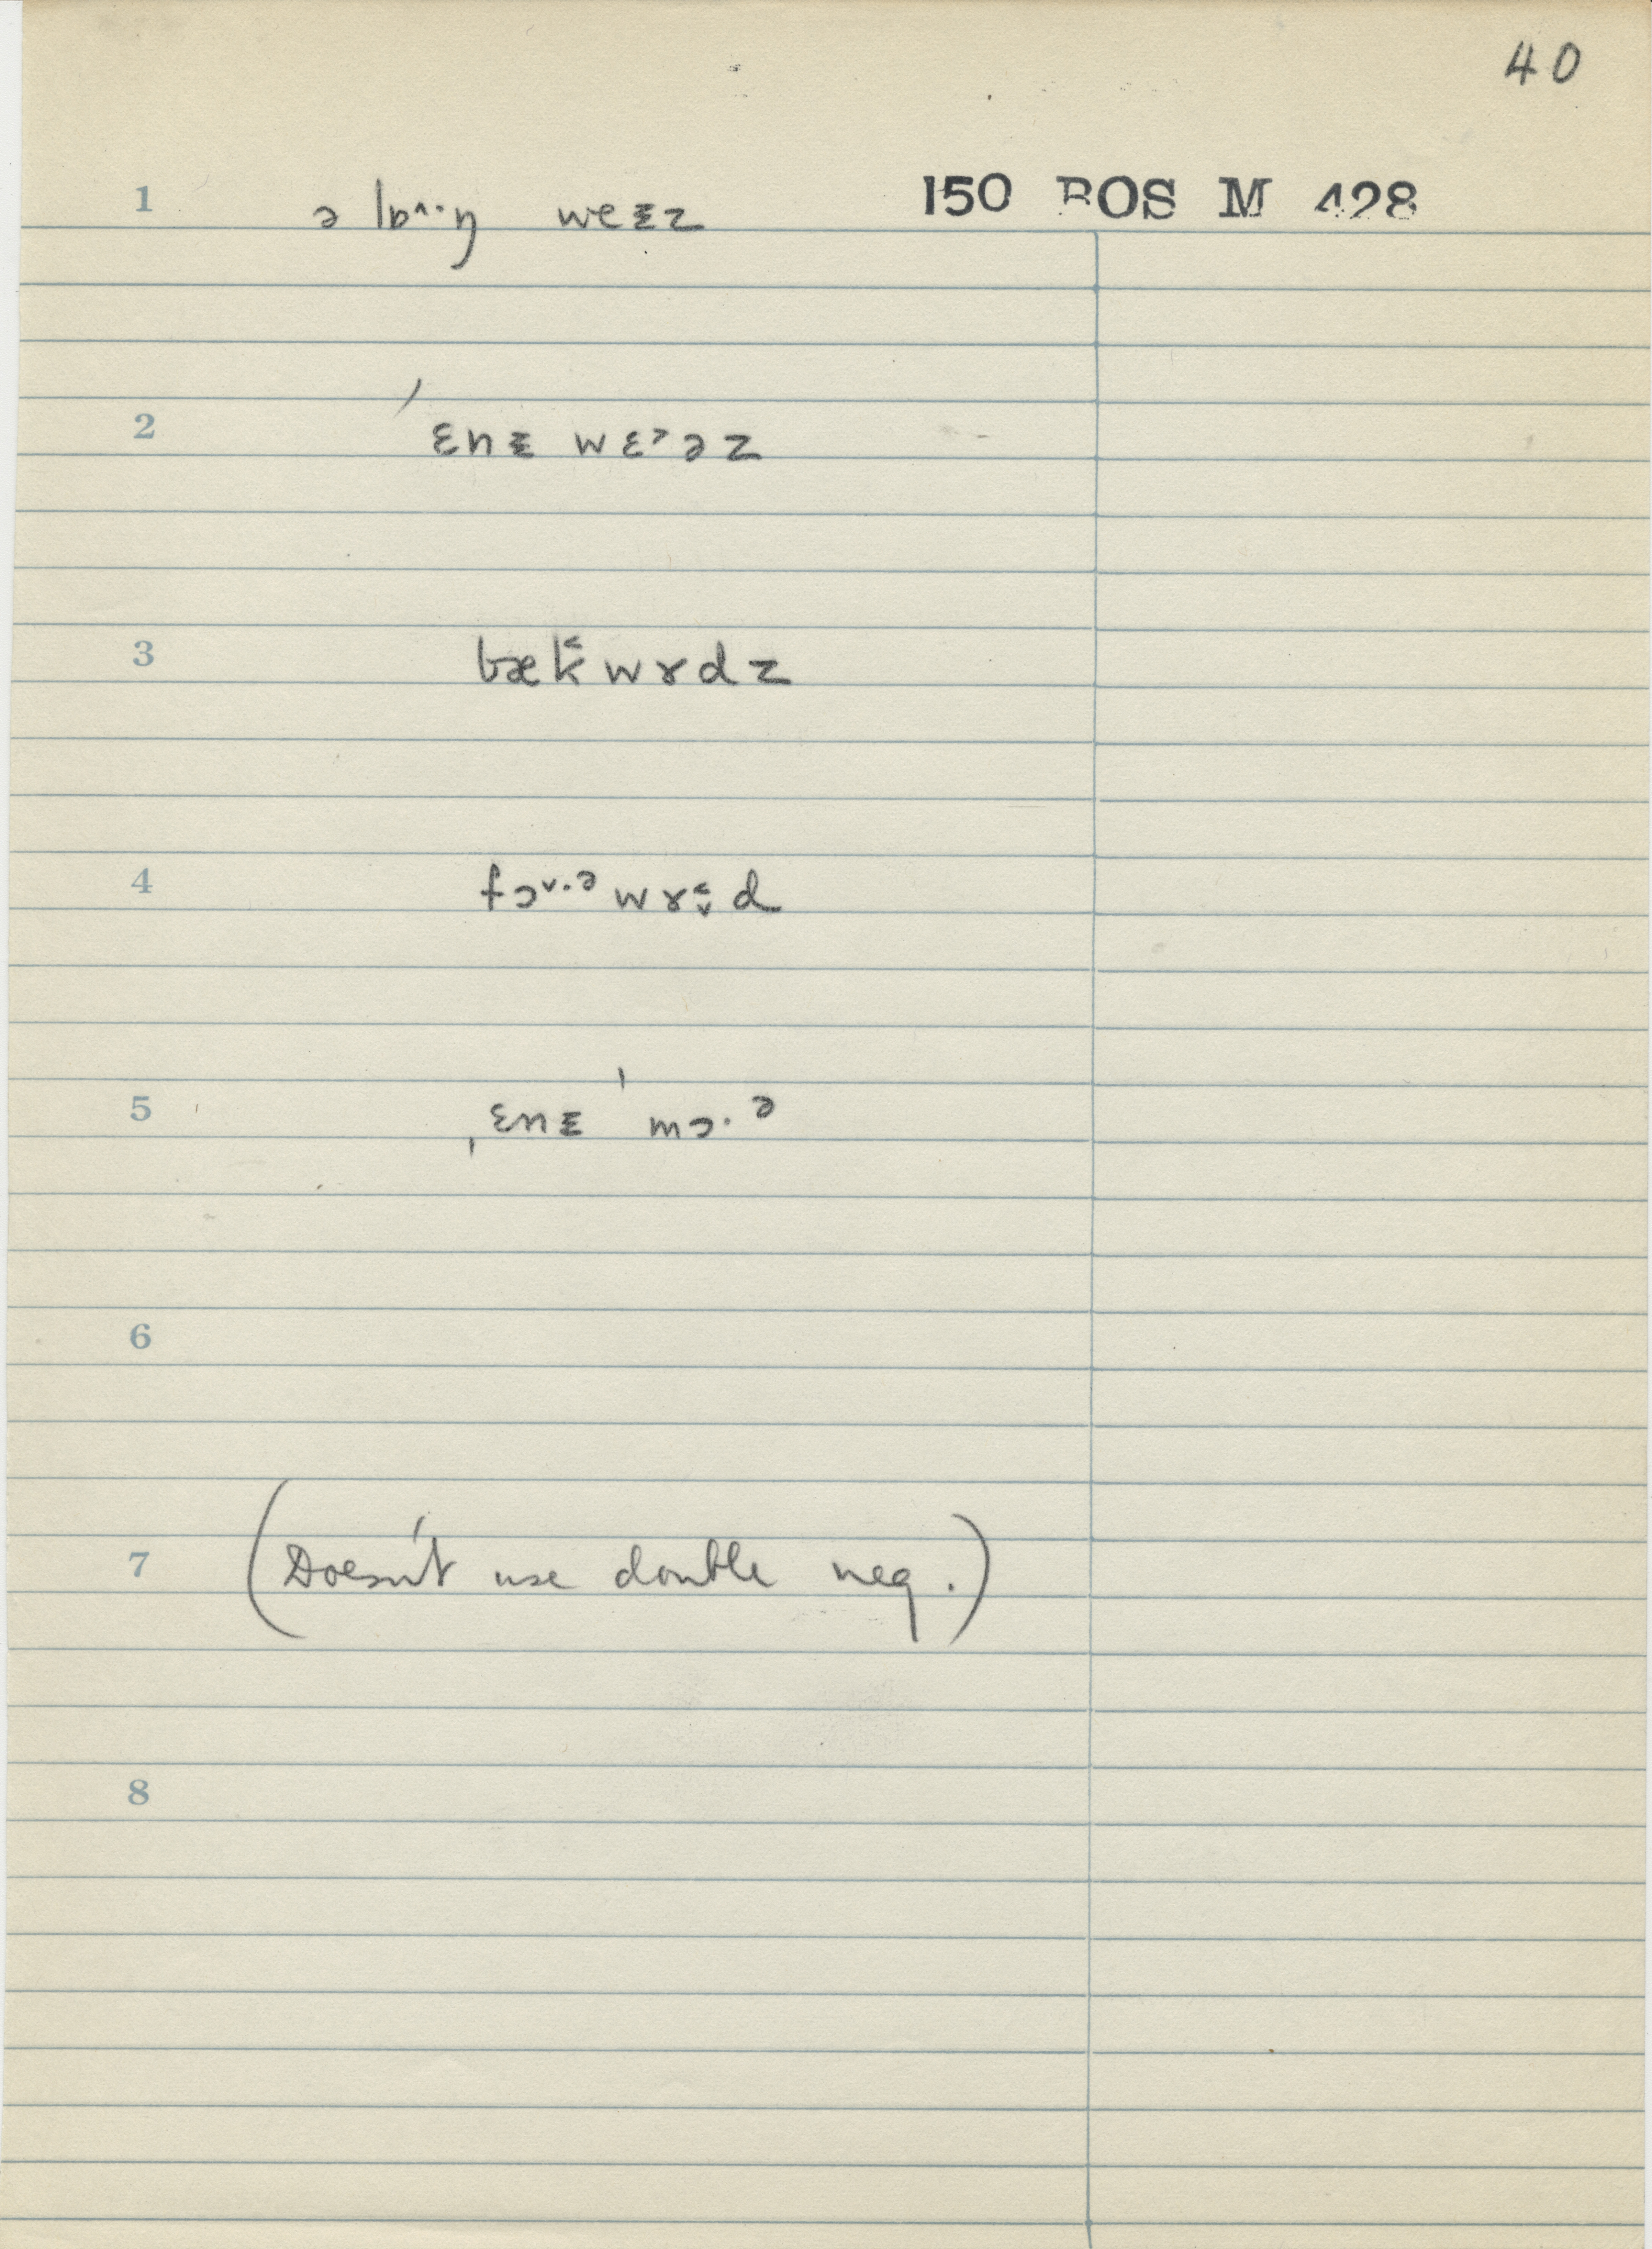 40
150 BOS M 428
1 ə lɒ^·ŋ weᵻz
2 ˈɛnᵻ wɛ˃əz
3 bæk̆wɤdz
4 fɔ˅·ᵊwɤd
5 ˌɛnᵻ ˈmɔ·ᵊ
6
7 (Doesn't use double neg.)
8